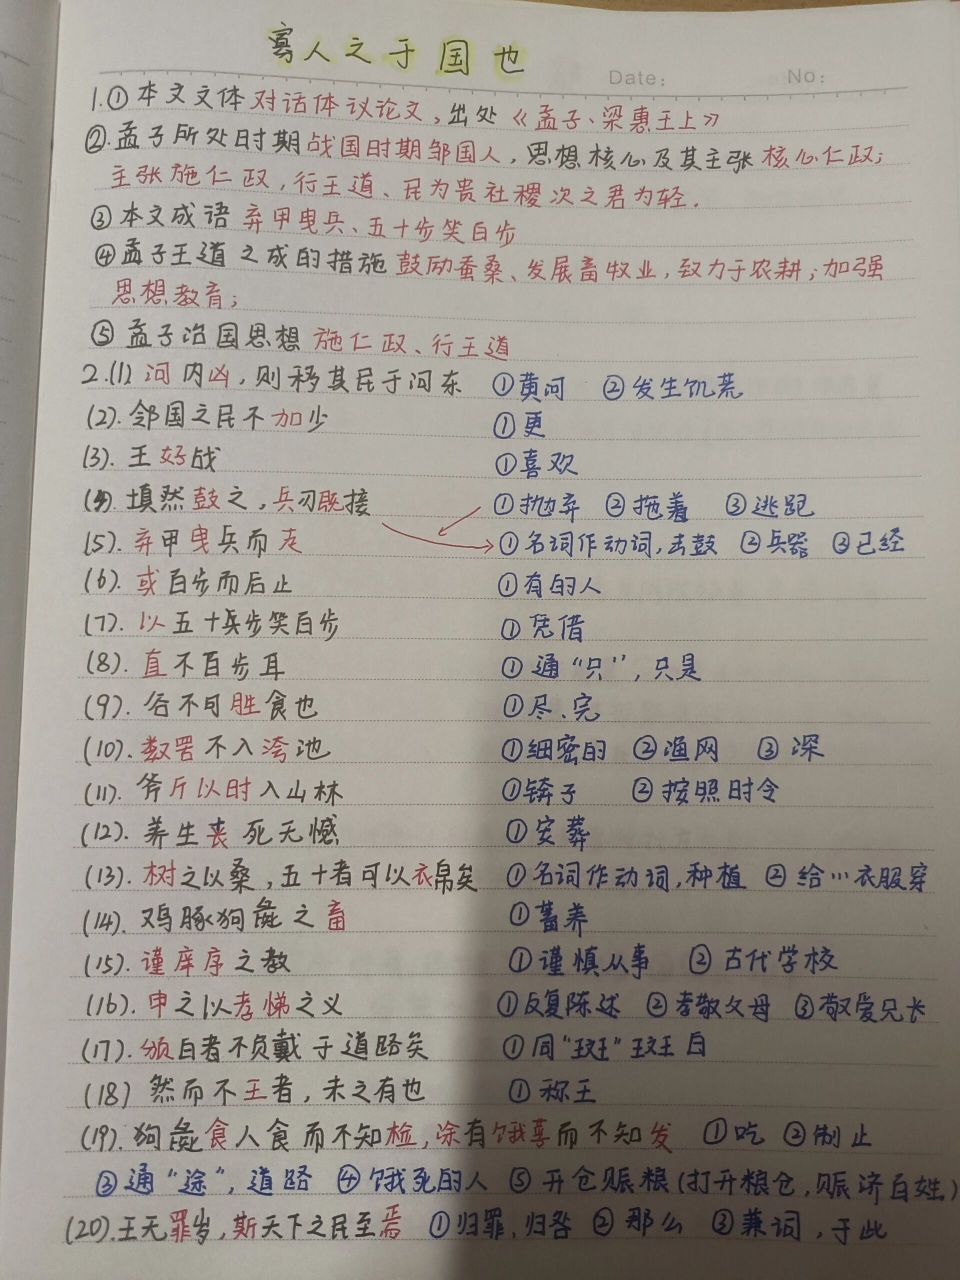 寡人之于国也
Date: No:
1.①本文文体 对话体议论文,出处《孟子、梁惠王上》
②.孟子所处时期战国时期邹国人,思想核心及其主张 核心仁政;
主张施仁政,行王道、民为贵社稷次之君为轻.
③本文成语 弃甲曳兵、五十步笑百步
④孟子王道之成的措施 鼓励蚕桑、发展畜牧业,致力于农耕;加强
思想教育;
⑤孟子治国思想 施仁政、行王道
2.(1)河内凶,则移其民于河东 ①黄河 ②发生饥荒
(2).邻国之民不加少 ①更
(3).王好战 ①喜欢
(4).填然鼓之,兵刃既接 ①抛弃 ②拖着 ③逃跑
(5).弃甲曳兵而走 ①名词作动词,击鼓 ②兵器 ③已经
(6).或百步而后止 ①有的人
(7).以五十步笑百步 ①凭借
(8).直不百步耳 ①通“只”,只是
(9).谷不可胜食也 ①尽、完
(10).数罟不入洿池 ①细密的 ②渔网 ③深
(11).斧斤以时入山林 ①锛子 ②按照时令
(12).养生丧死无憾 ①安葬
(13).树之以桑,五十者可以衣帛矣 ①名词作动词,种植 ②给…衣服穿
(14).鸡豚狗彘之畜 ①蓄养
(15).谨庠序之教 ①谨慎从事 ②古代学校
(16).申之以孝悌之义 ①反复陈述 ②孝敬父母 ③敬爱兄长
(17).颁白者不负戴于道路矣 ①同“斑”斑白
(18)然而不王者,未之有也 ①称王
(19).狗彘食人食而不知检,涂有饿莩而不知发 ①吃 ②制止
③通“途”,道路 ④饿死的人 ⑤开仓赈粮(打开粮仓,赈济百姓)
(20).王无罪岁,斯天下之民至焉 ①归罪,归咎 ②那么 ③兼词,于此